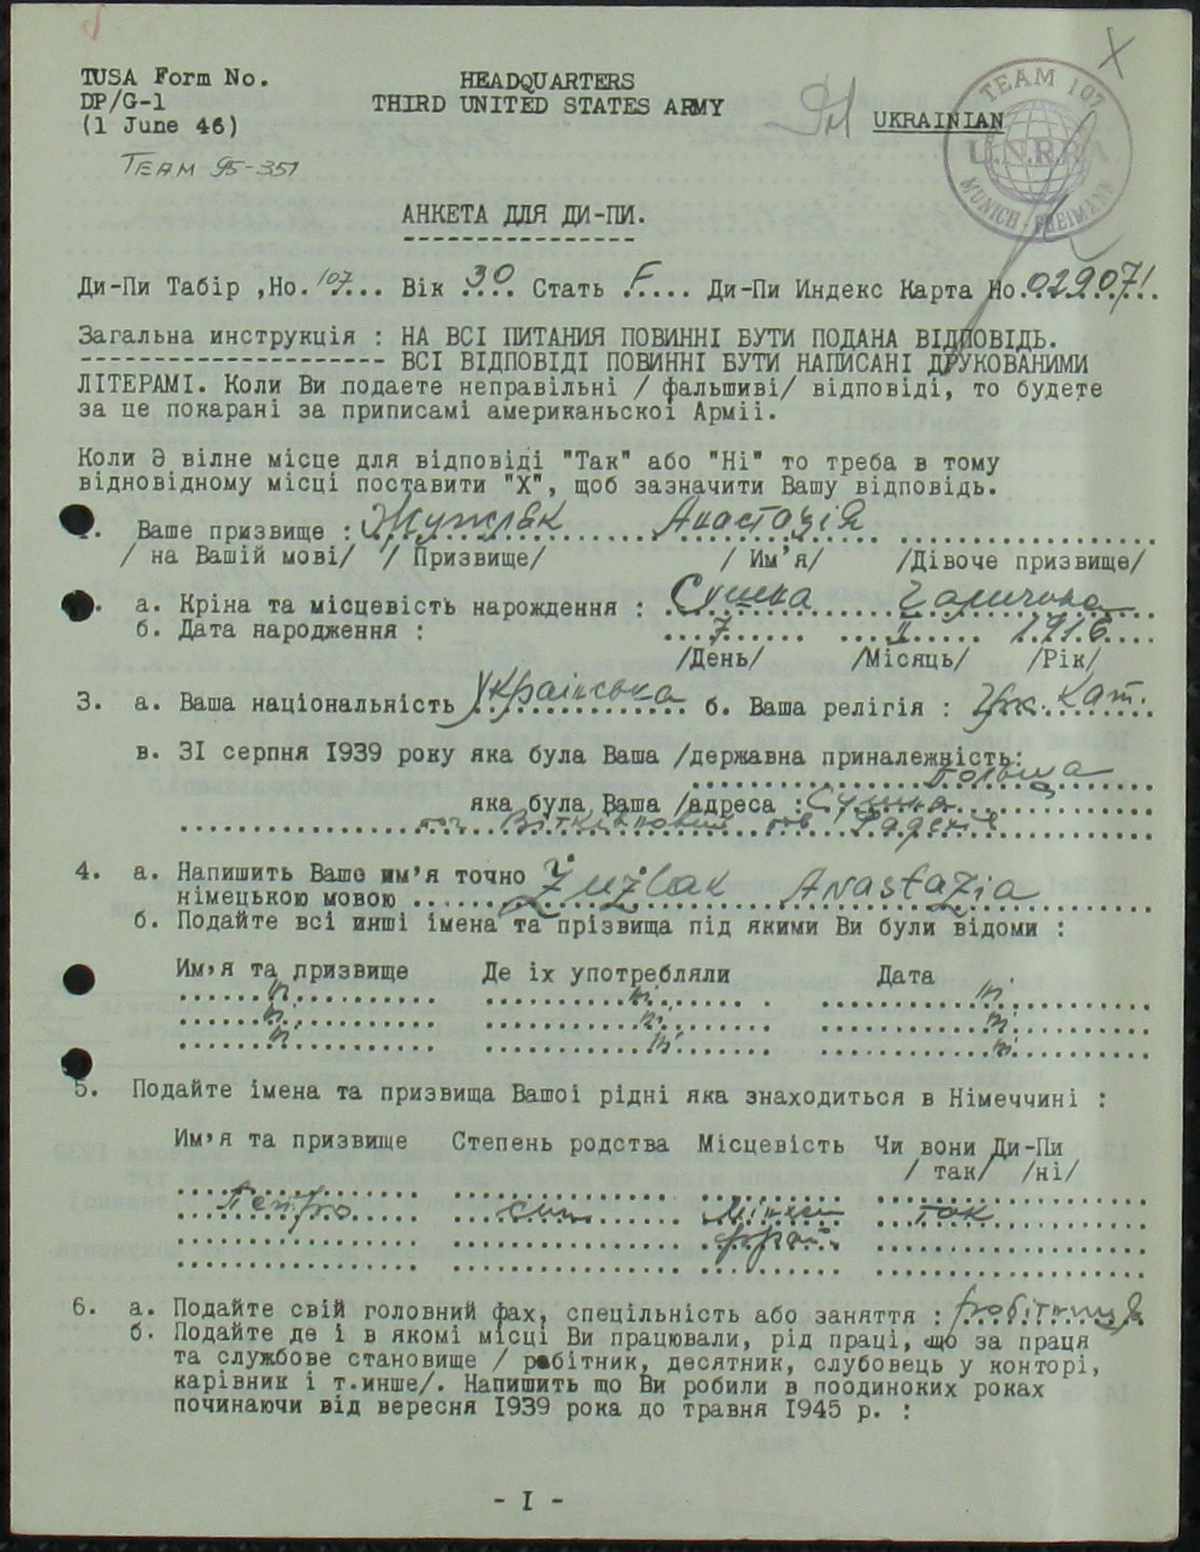 TUSA Form No.
DP/G-1
(1 June 46)
HEADQUARTERS
THIRD UNITED STATES ARMY
UKRAINIAN
TEAM 107
U.N.R.R.A
MUNICH - FREIMANN
X
TEAM 95-351
АНКЕТА ДЛЯ ДИ-ПИ.
Ди-Пи Табір ,Но. 107.... Вік 30 Стать F..... Ди-Пи Индекс Карта Но. 029071.
Загальна инструкція : НА ВСІ ПИТАНИЯ ПОВИННІ БУТИ ПОДАНА ВІДПОВІДЬ.
--------------------- ВСІ ВІДПОВІДІ ПОВИННІ БУТИ НАПИСАНІ ДРУКОВАНИМИ
ЛІТЕРАМІ. Коли Ви подаете неправільні / фальшиві/ відповіді, то будете
за це покарані за приписамі американьскоі Арміі.
Коли Э вілне місце для відповіді "Так" або "Ні" то треба в тому
відновідному місці поставити "X", щоб зазначити Вашу відповідь.
. Ваше призвище : Жужляк Анастазія
/ на Вашій мові/ / Призвище/ / Им'я/ /Дівоче призвище/
. а. Кріна та місцевість нарождення : Сушка Галичина
б. Дата народження : 7 II 1916
/День/ /Місяць/ /Рік/
3. а. Ваша національність Українська б. Ваша релігія : Гр. Кат.
в. 31 серпня 1939 року яка була Ваша /державна приналежність:
Польща
яка була Ваша /адреса : Сушка
4. а. Напишить Ваше им'я точно
німецькою мовою Żużlak Anastazia
б. Подайте всі инші імена та прізвища під якими Ви були відоми :
Им'я та призвище Де іх употребляли Дата
ні ні ні
ні ні ні
ні ні ні
5. Подайте імена та призвища Вашоі рідні яка знаходиться в Німеччині :
Им'я та призвище Степень родства Місцевість Чи вони Ди-Пи
/ так/ /ні/
Петро син Мінхен так
Фрай.
6. а. Подайте свій головний фах, спецільність або заняття : робітниця
б. Подайте де і в якомі місці Ви працювали, рід праці, що за праця
та службове становище / рабітник, десятник, слубовець у конторі,
карівник і т.инше/. Напишить що Ви робили в поодиноких роках
починаючи від вересня 1939 рока до травня 1945 р. :
- I -